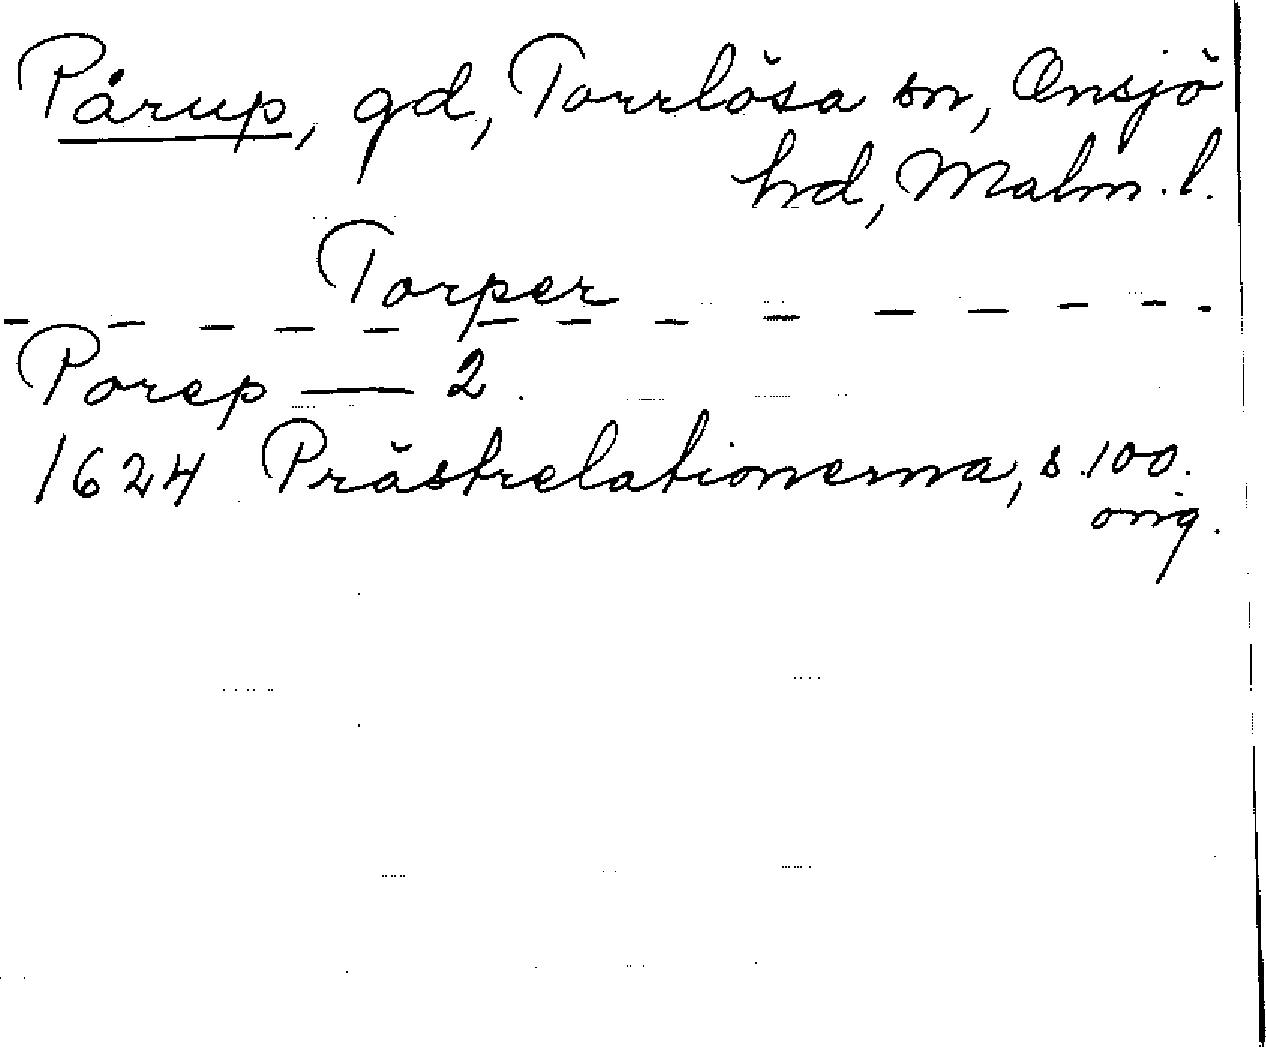 Pårup, gd, Torrlösa sn, Onsjö
hd, Malm. l.
Torper
Porep — 2
1624 Prästrelationerna, s. 100.
orig.